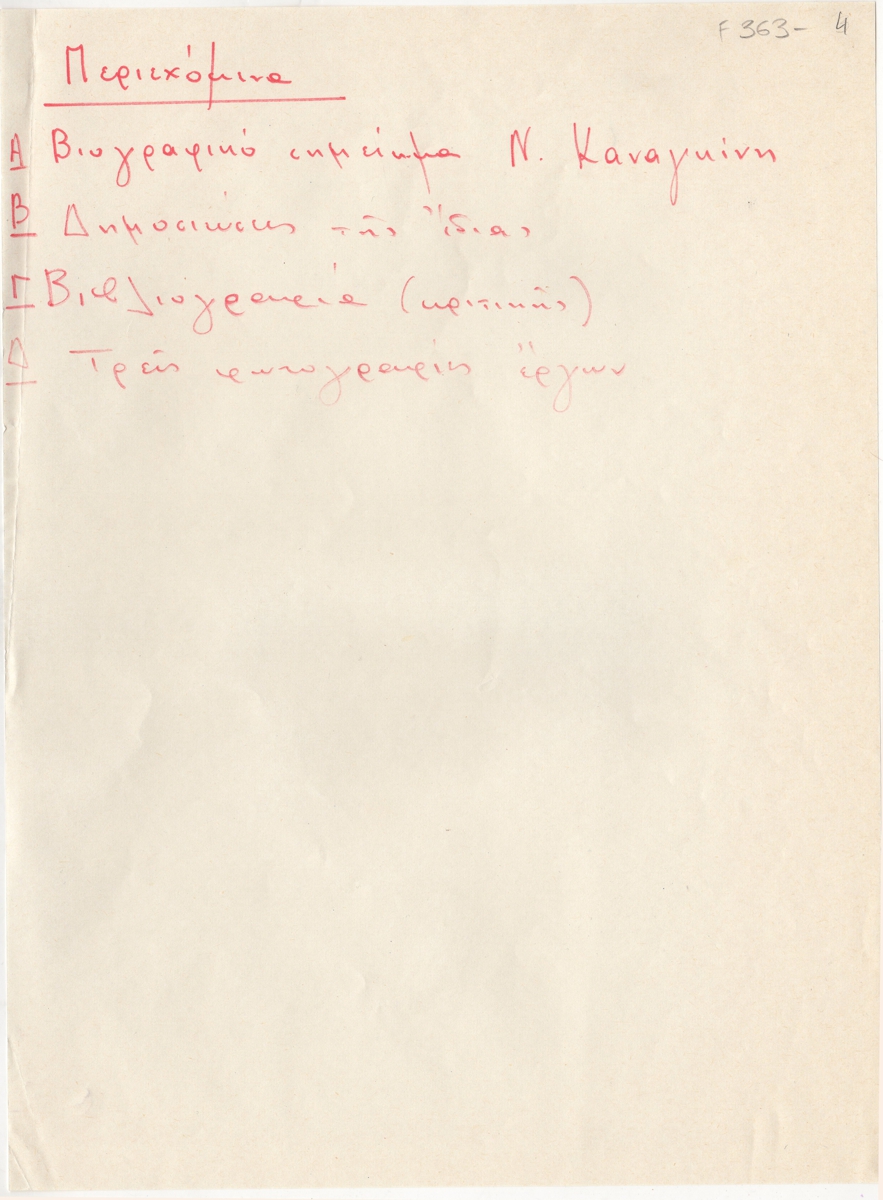 F 363- 4
Περιεχόμενα
Α Βιογραφικό σημείωμα Ν. Καναγκίνη
Β Δημοσιεύσεις τῆς ἴδιας
Γ Βιβλιογραφία (κριτικῆς)
Δ Τρεῖς φωτογραφίες ἔργων